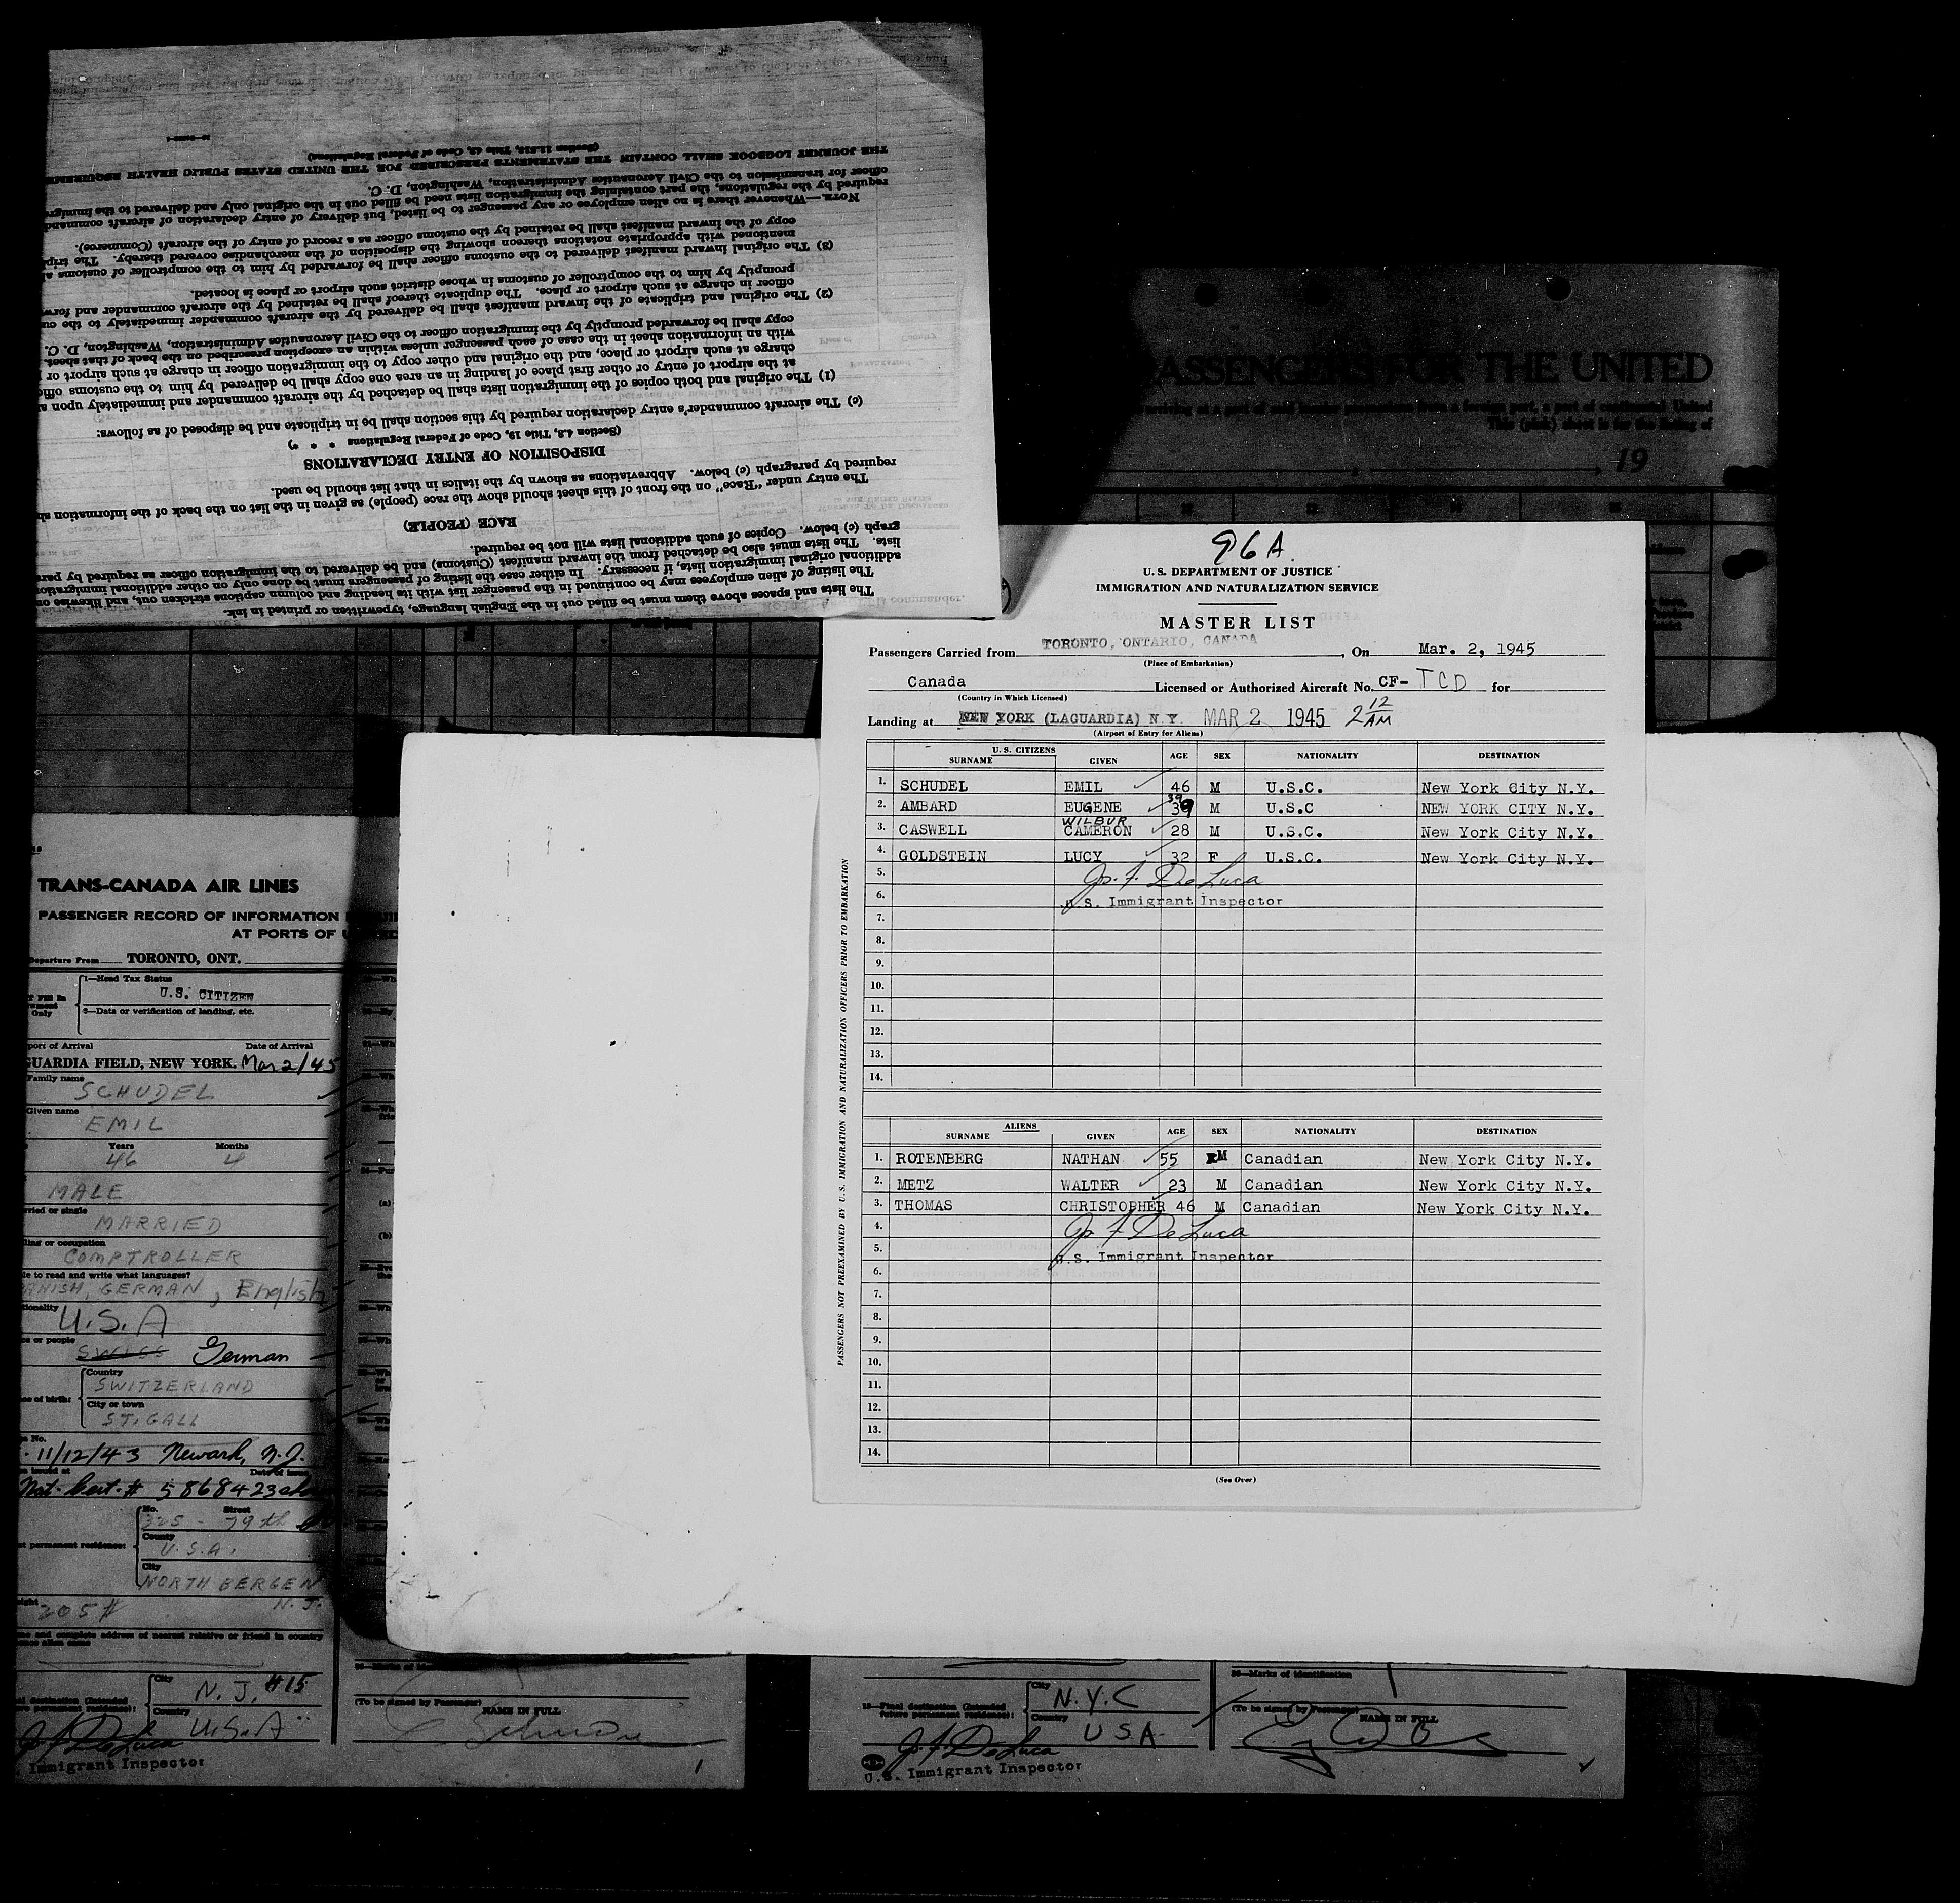 THE JOURNEY LOGBOOK SHALL CONTAIN THE STATEMENTS PRESCRIBED FOR THE UNITED STATES PUBLIC HEALTH
(Section 11.513, Title 42, Code of Federal Regulations)
officer for transmission to the Civil Aeronautics Administration, Washington, D. C.
required by the regulations, the part containing the immigration lists need be filled out in the original only and delivered to the
NOTE.—Whenever there is no alien employee or any passenger to be listed, but delivery of entry declaration of aircraft
copy of the inward manifest shall be retained by the customs officer as a record of entry of the aircraft (Commerce).
mentioned with appropriate notations thereon showing the disposition of the merchandise covered thereby. The
(3) The original inward manifest delivered to the customs officer shall be forwarded by him to the comptroller of customs
promptly by him to the comptroller of customs in whose district such airport or place is located.
officer in charge at such airport or place. The duplicate thereof shall be retained by the aircraft commander and
(2) The original and triplicate of the inward manifest shall be delivered by the aircraft commander immediately to the
copy shall be forwarded promptly by the immigration officer to the Civil Aeronautics Administration, Washington, D. C.
with an information sheet in the case of each passenger unless within an exception prescribed on the back of that sheet.
charge at such airport or place, and the original and other copy to the immigration officer in charge at such airport or
at the airport of entry or other first place of landing in an area one copy shall be delivered by him to the customs
(1) The original and both copies of the immigration lists shall be detached by the aircraft commander and immediately upon
(c) The aircraft commander's entry declaration required by this section shall be in triplicate and be disposed of as follows:
(Section 4.8, Title 19, Code of Federal Regulations * * *)
DISPOSITION OF ENTRY DECLARATIONS
required by paragraph (c) below. Abbreviations as shown by the italics in that list should be used.
The entry under "Race" on the front of this sheet should show the race (people) as given in the list on the back of the information
RACE (PEOPLE)
graph (c) below. Copies of such additional lists will not be required.
lists. The lists must also be detached from the inward manifest (Customs) and be delivered to the immigration officer as required by
additional original immigration lists, if necessary. In either case the listing of passengers must be done only on other additional
The listing of alien employees may be continued in the passenger list with its heading and column captions stricken out, and likewise
The lists and spaces above them must be filled out in the English language, typewritten or printed in ink.
PASSENGERS FOR THE UNITED
19
96A.
U. S. DEPARTMENT OF JUSTICE
IMMIGRATION AND NATURALIZATION SERVICE
MASTER LIST
Passengers Carried from TORONTO, ONTARIO, CANADA, On Mar. 2, 1945
(Place of Embarkation)
Canada Licensed or Authorized Aircraft No. CF- TCD for
(Country in Which Licensed)
Landing at NEW YORK (LAGUARDIA) N.Y. MAR 2 1945 2 12 AM
(Airport of Entry for Aliens)
U. S. CITIZENS
SURNAME GIVEN AGE SEX NATIONALITY DESTINATION
1. SCHUDEL EMIL 46 M U.S.C. New York City N.Y.
2. AMBARD EUGENE 39 39 M U.S.C NEW YORK CITY N.Y.
WILBUR
3. CASWELL CAMERON 28 M U.S.C. New York City N.Y.
4. GOLDSTEIN LUCY 32 F U.S.C. New York City N.Y.
5. Jo. F. DeLuca
6. U.S. Immigrant Inspector
7.
8.
9.
10.
11.
12.
13.
14.
ALIENS
SURNAME GIVEN AGE SEX NATIONALITY DESTINATION
1. ROTENBERG NATHAN 55 M Canadian New York City N.Y.
2. METZ WALTER 23 M Canadian New York City N.Y.
3. THOMAS CHRISTOPHER 46 M Canadian New York City N.Y.
4. Jo F DeLuca
5. U.S. Immigrant Inspector
6.
7.
8.
9.
10.
11.
12.
13.
14.
(See Over)
PASSENGERS NOT PREEXAMINED BY U. S. IMMIGRATION AND NATURALIZATION OFFICERS PRIOR TO EMBARKATION
TRANS-CANADA AIR LINES
PASSENGER RECORD OF INFORMATION
AT PORTS OF
Departure From TORONTO, ONT.
1—Head Tax Status
U.S. CITIZEN
2—Data or verification of landing, etc.
port of Arrival Date of Arrival
GUARDIA FIELD, NEW YORK. Mar 2/45
Family name
SCHUDEL
Given name
EMIL
Years Months
46 4
MALE
rried or single
MARRIED
ling or occupation
COMPTROLLER
le to read and write what languages?
GERMAN, English
tionality
U.S.A
ce or people
SWISS German
Country
SWITZERLAND
City or town
ST. GALL
11/12/43 Newark, N.J.
issued at Date of issue
Nat. Cert. # 5868423
No. Street
325 - 79th
County
U.S.A.
permanent residence:
City
NORTH BERGEN
N.J.
205#
me and complete address of nearest relative or friend in country
City N.J. #15
Country U.S.A
J. F. DeLuca
Immigrant Inspector
(To be signed by Passenger) NAME IN FULL
18—Final destination (Intended future permanent residence):
City N.Y.C
Country USA.
J. F. DeLuca
U.S. Immigrant Inspector
36—Marks of identification
(To be signed by Passenger) NAME IN FULL